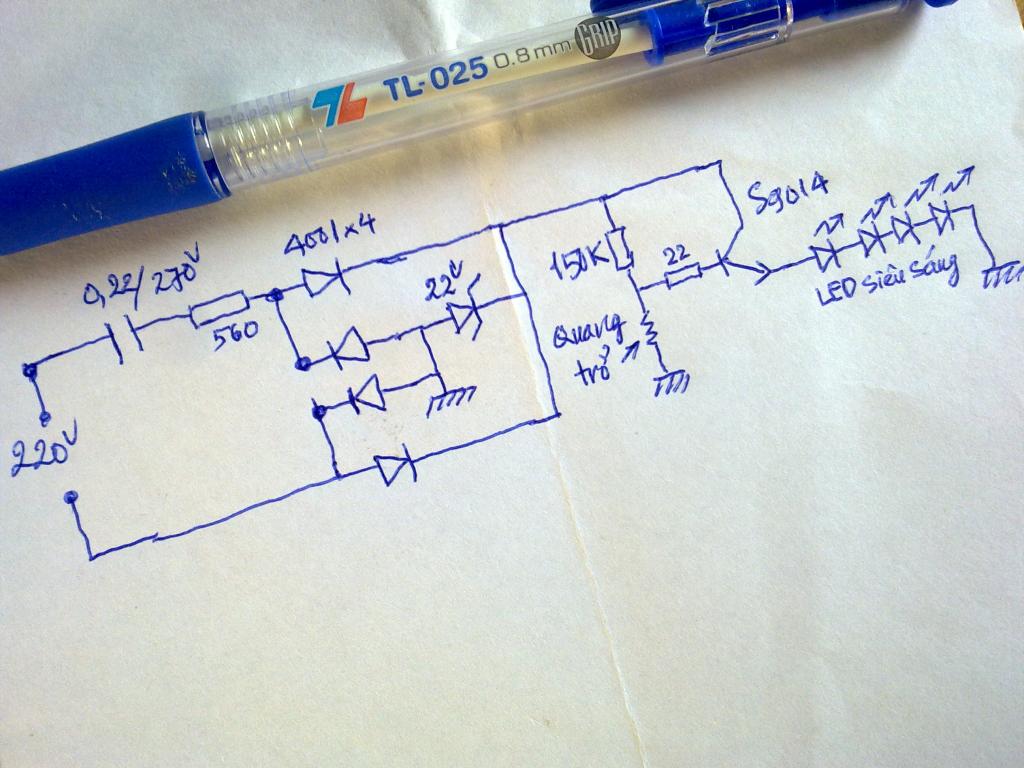 TL TL-025 0.8mm GRIP
0,22/270V
560
4001x4
22V
220V
150K
22
S9014
Quang
trở
LED Siêu Sáng